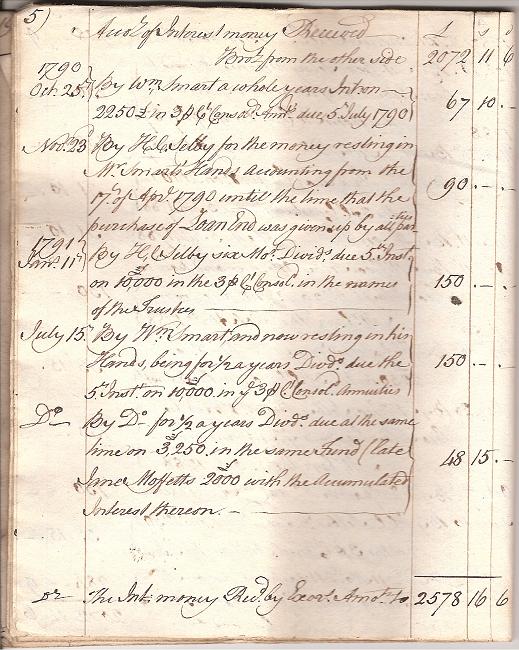 5) Acco.t of Interest money Received £ s d
Bro.t from the other side 2072 11 6
1790
Oct. 25.th By Wm. Smart a whole years Int. on
2250 £ in 3 P C.t Consol.d Ann.s due 5th July 1790 67 10 -
Nov. 23.d By H. C. Selby for the money resting in
Mr. Smarts Hands accounting from the
17.th of Apr.l 1790 until the time that the
purchase of Loan End was given up by all parties 90 - -
1791
Jan.y 11th By H. C. Selby six Mo.s Divid.d due 5th Inst.
on 10,000 in the 3 P C.t Consol. in the names
of the Trustees 150 - -
July 15. By Wm. Smart and now resting in his
Hands, being for 1/2 a years Divd.d due the
5th Inst. on 10,000 in ye 3 P C.t Consol. Annuities 150 - -
Do By Do for 1/2 a years Divd.d due at the same
time on 3,250 in the same Fund (late
Moffetts 2800 with the Accumulated
Interest thereon. 48 15 -
The Int. money Rec.d by Exors. Amo.ts to 2578 16 6